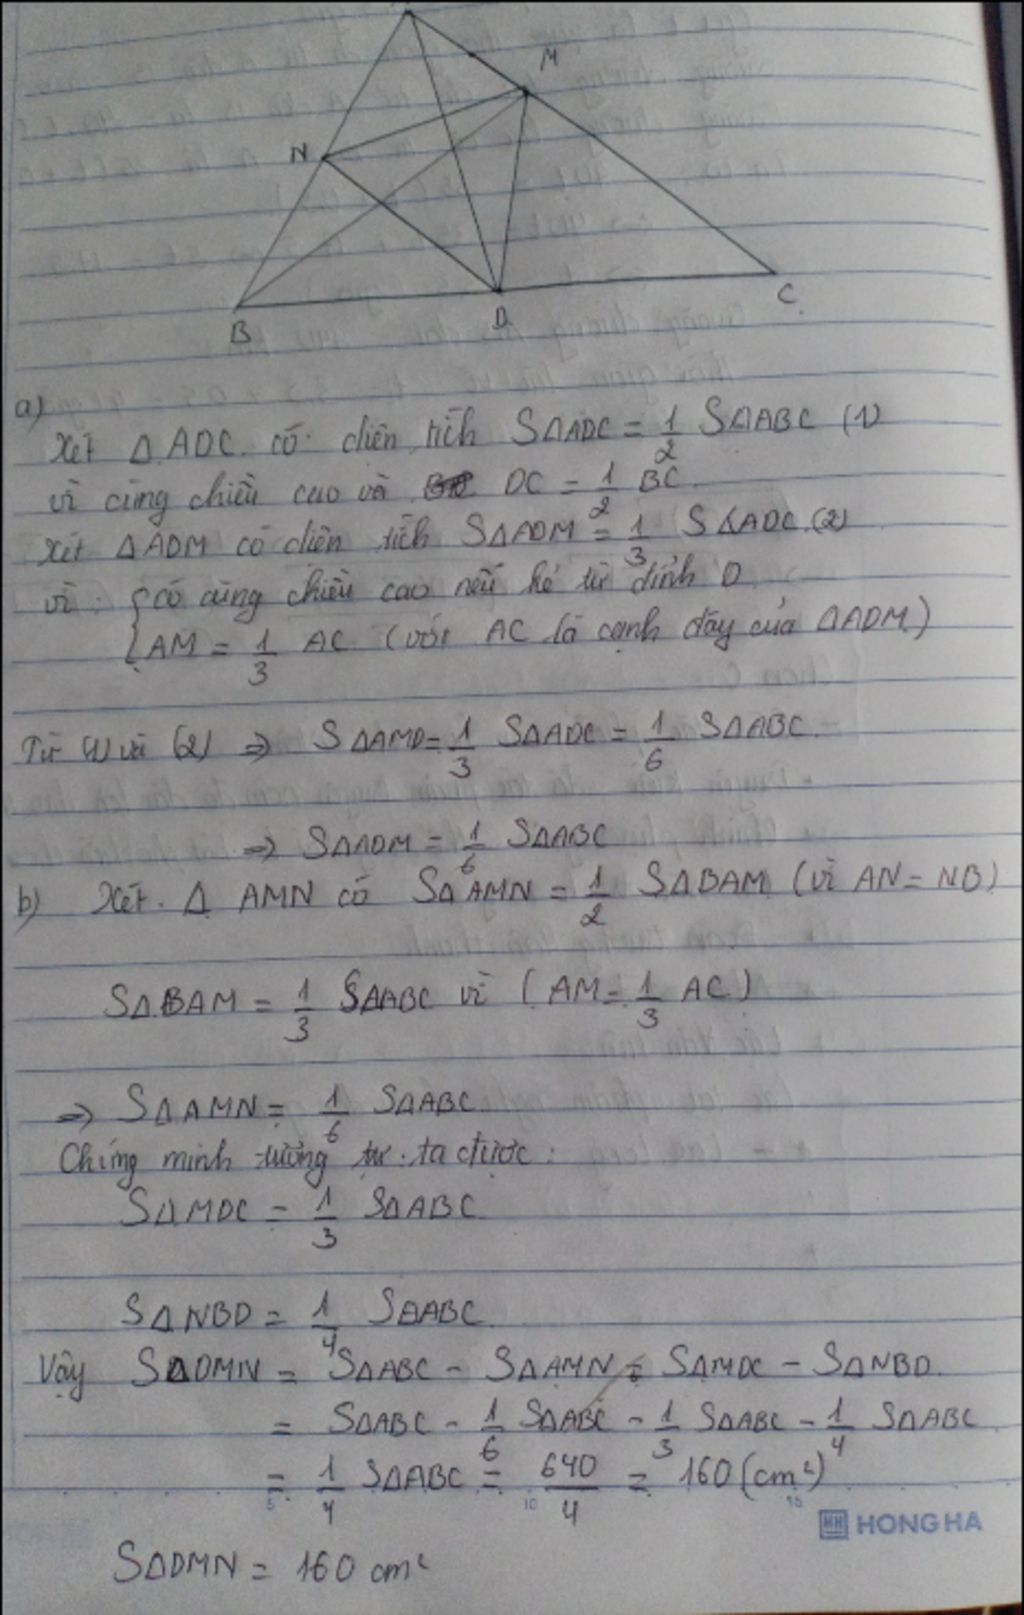 M
N
B
D
C
a)
Xét Δ ADC có diện tích SΔADC = 1/2 SΔABC (1)
vì cùng chiều cao và DC = 1/2 BC
Xét ΔADM có diện tích SΔADM = 1/3 SΔADC (2)
vì: { có cùng chiều cao nếu kẻ từ đỉnh D
AM = 1/3 AC (với AC là cạnh đáy của ΔADM)
Từ (1) và (2) => SΔAMD = 1/3 SΔADC = 1/6 SΔABC
=> SΔADM = 1/6 SΔABC
b) Xét Δ AMN có SΔAMN = 1/2 SΔBAM (vì AN = NB)
SΔBAM = 1/3 SΔABC vì (AM = 1/3 AC)
=> SΔAMN = 1/6 SΔABC
Chứng minh tương tự ta được:
SΔMDC = 1/3 SΔABC
SΔNBD = 1/4 SΔABC
Vậy SΔDMN = SΔABC - SΔAMN - SΔMDC - SΔNBD
= SΔABC - 1/6 SΔABC - 1/3 SΔABC - 1/4 SΔABC
= 1/4 SΔABC = 640/4 = 160 (cm²)
5 10 15
HH HONG HA
SΔDMN = 160 cm²